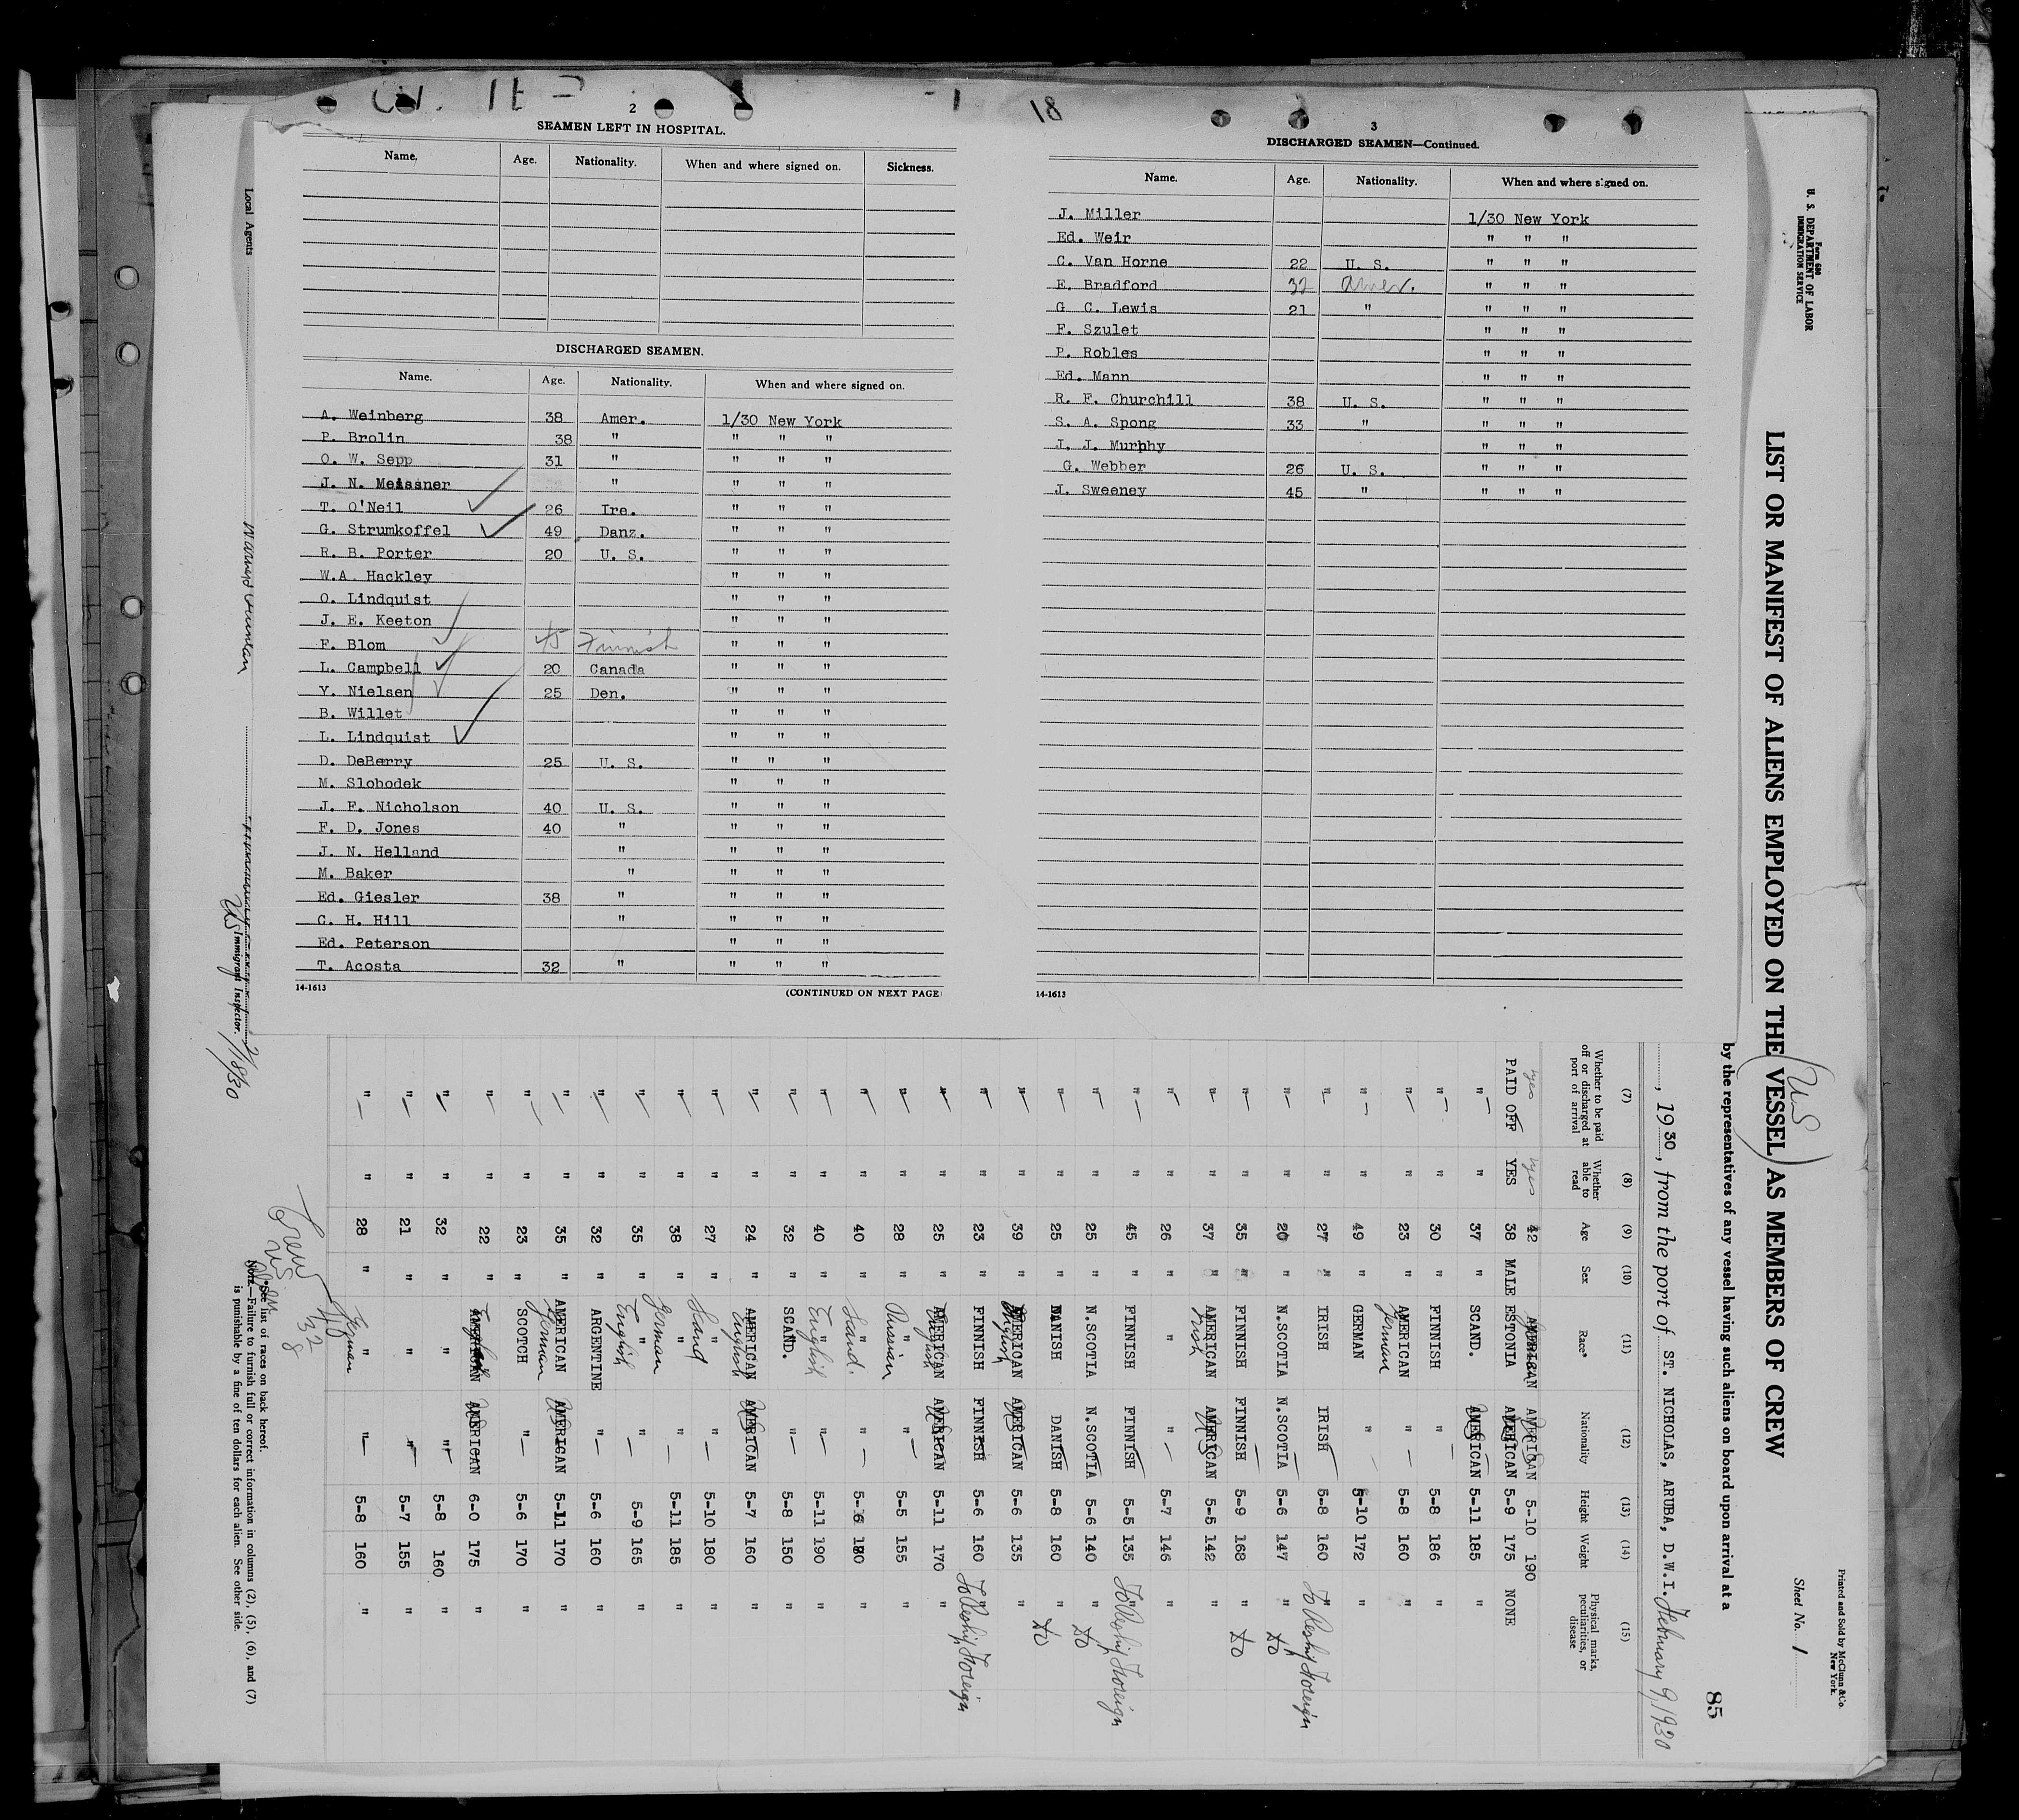 2
SEAMEN LEFT IN HOSPITAL.
Name. Age. Nationality. When and where signed on. Sickness.
DISCHARGED SEAMEN.
Name. Age. Nationality. When and where signed on.
A. Weinberg 38 Amer. 1/30 New York
P. Brolin 38 " " " "
O. W. Sepp 31 " " " "
J. N. Meissner " " " "
T. O'Neil 26 Ire. " " "
G. Strumkoffel 49 Danz. " " "
R. B. Porter 20 U. S. " " "
W.A. Hackley " " "
O. Lindquist " " "
J. E. Keeton " " "
F. Blom 45 Finnish " " "
L. Campbell 20 Canada " " "
Y. Nielsen 25 Den. " " "
B. Willet " " "
L. Lindquist " " "
D. DeBerry 25 U. S. " " "
M. Slobodek " " "
J. F. Nicholson 40 U. S. " " "
F. D. Jones 40 " " " "
J. N. Helland " " " "
M. Baker " " " "
Ed. Giesler 38 " " " "
C. H. Hill " " " "
Ed. Peterson " " "
T. Acosta 32 " " " "
14-1613 (CONTINUED ON NEXT PAGE)
18
3
DISCHARGED SEAMEN—Continued.
Name. Age. Nationality. When and where signed on.
J. Miller 1/30 New York
Ed. Weir " " "
C. Van Horne 22 U. S. " " "
E. Bradford 32 Amer. " " "
G. C. Lewis 21 " " " "
F. Szulet " " "
P. Robles " " "
Ed. Mann " " "
R. F. Churchill 38 U. S. " " "
S. A. Spong 33 " " " "
J. J. Murphy " " "
G. Webber 26 U. S. " " "
J. Sweeney 45 " " " "
14-1613
Form 680
U. S. DEPARTMENT OF LABOR
IMMIGRATION SERVICE
Printed and Sold by McClunn & Co.
New York.
Sheet No. 1
LIST OR MANIFEST OF ALIENS EMPLOYED ON THE VESSEL AS MEMBERS OF CREW
US
85
by the representatives of any vessel having such aliens on board upon arrival at a
, 1930, from the port of ST. NICHOLAS, ARUBA, D.W.I. February 9, 1930
(7) (8) (9) (10) (11) (12) (13) (14) (15)
Whether to be paid off or discharged at port of arrival Whether able to read Age Sex Race* Nationality Height Weight Physical marks, peculiarities, or disease
yes yes 42 AMERICAN AMERICAN 5-10 190
PAID OFF YES 38 MALE ESTONIA AMERICAN 5-9 175 NONE
" " 37 " SCAND. AMERICAN 5-11 185 "
" " 30 " FINNISH " 5-8 186 "
" " 23 " AMERICAN German " 5-8 160 "
" " 49 " GERMAN " 5-10 172 "
" " 27 " IRISH IRISH 5-8 160 " To Reship Foreign
" " 20 " N.SCOTIA N.SCOTIA 5-6 147 " do
" " 35 " FINNISH FINNISH 5-9 168 " do
" " 37 " AMERICAN Irish AMERICAN US 5-5 142 "
" " 26 " " " 5-7 146 "
" " 45 " FINNISH FINNISH 5-5 135 " To Reship Foreign
" " 25 " N.SCOTIA N.SCOTIA 5-6 140 " do
" " 25 " DANISH DANISH 5-8 160 " do
" " 39 " AMERICAN English AMERICAN US 5-6 135 "
" " 23 " FINNISH FINNISH 5-6 160 " To Reship Foreign
" " 25 " AMERICAN English AMERICAN US 5-11 170 "
" " 28 " " Russian " 5-5 155 "
" " 40 " " Scand. " 180 "
" " 40 " " English " 5-11 190 "
" " 32 " SCAND. " 5-8 150 "
" " 24 " AMERICAN English AMERICAN US 5-7 160 "
" " 27 " " Scand " 5-10 180 "
" " 38 " " German " 5-11 185 "
" " 35 " " English " 5-9 165 "
" " 32 " ARGENTINE " 5-6 160 "
" " 35 " AMERICAN German AMERICAN US 5-11 170 "
" " 23 " SCOTCH " 5-6 170 "
" " 22 " AMERICAN AMERICAN US 6-0 175 "
" " 32 " " " 5-8 160 "
" " 21 " " " 5-7 155 "
" " 28 " " German " 5-8 160 "
Crew 40
US 32
Alien 8
*See list of races on back hereof.
NOTE.—Failure to furnish full or correct information in columns (2), (5), (6), and (7)
is punishable by a fine of ten dollars for each alien. See other side.
Local Agents
US Immigrant Inspector.
2/18/30